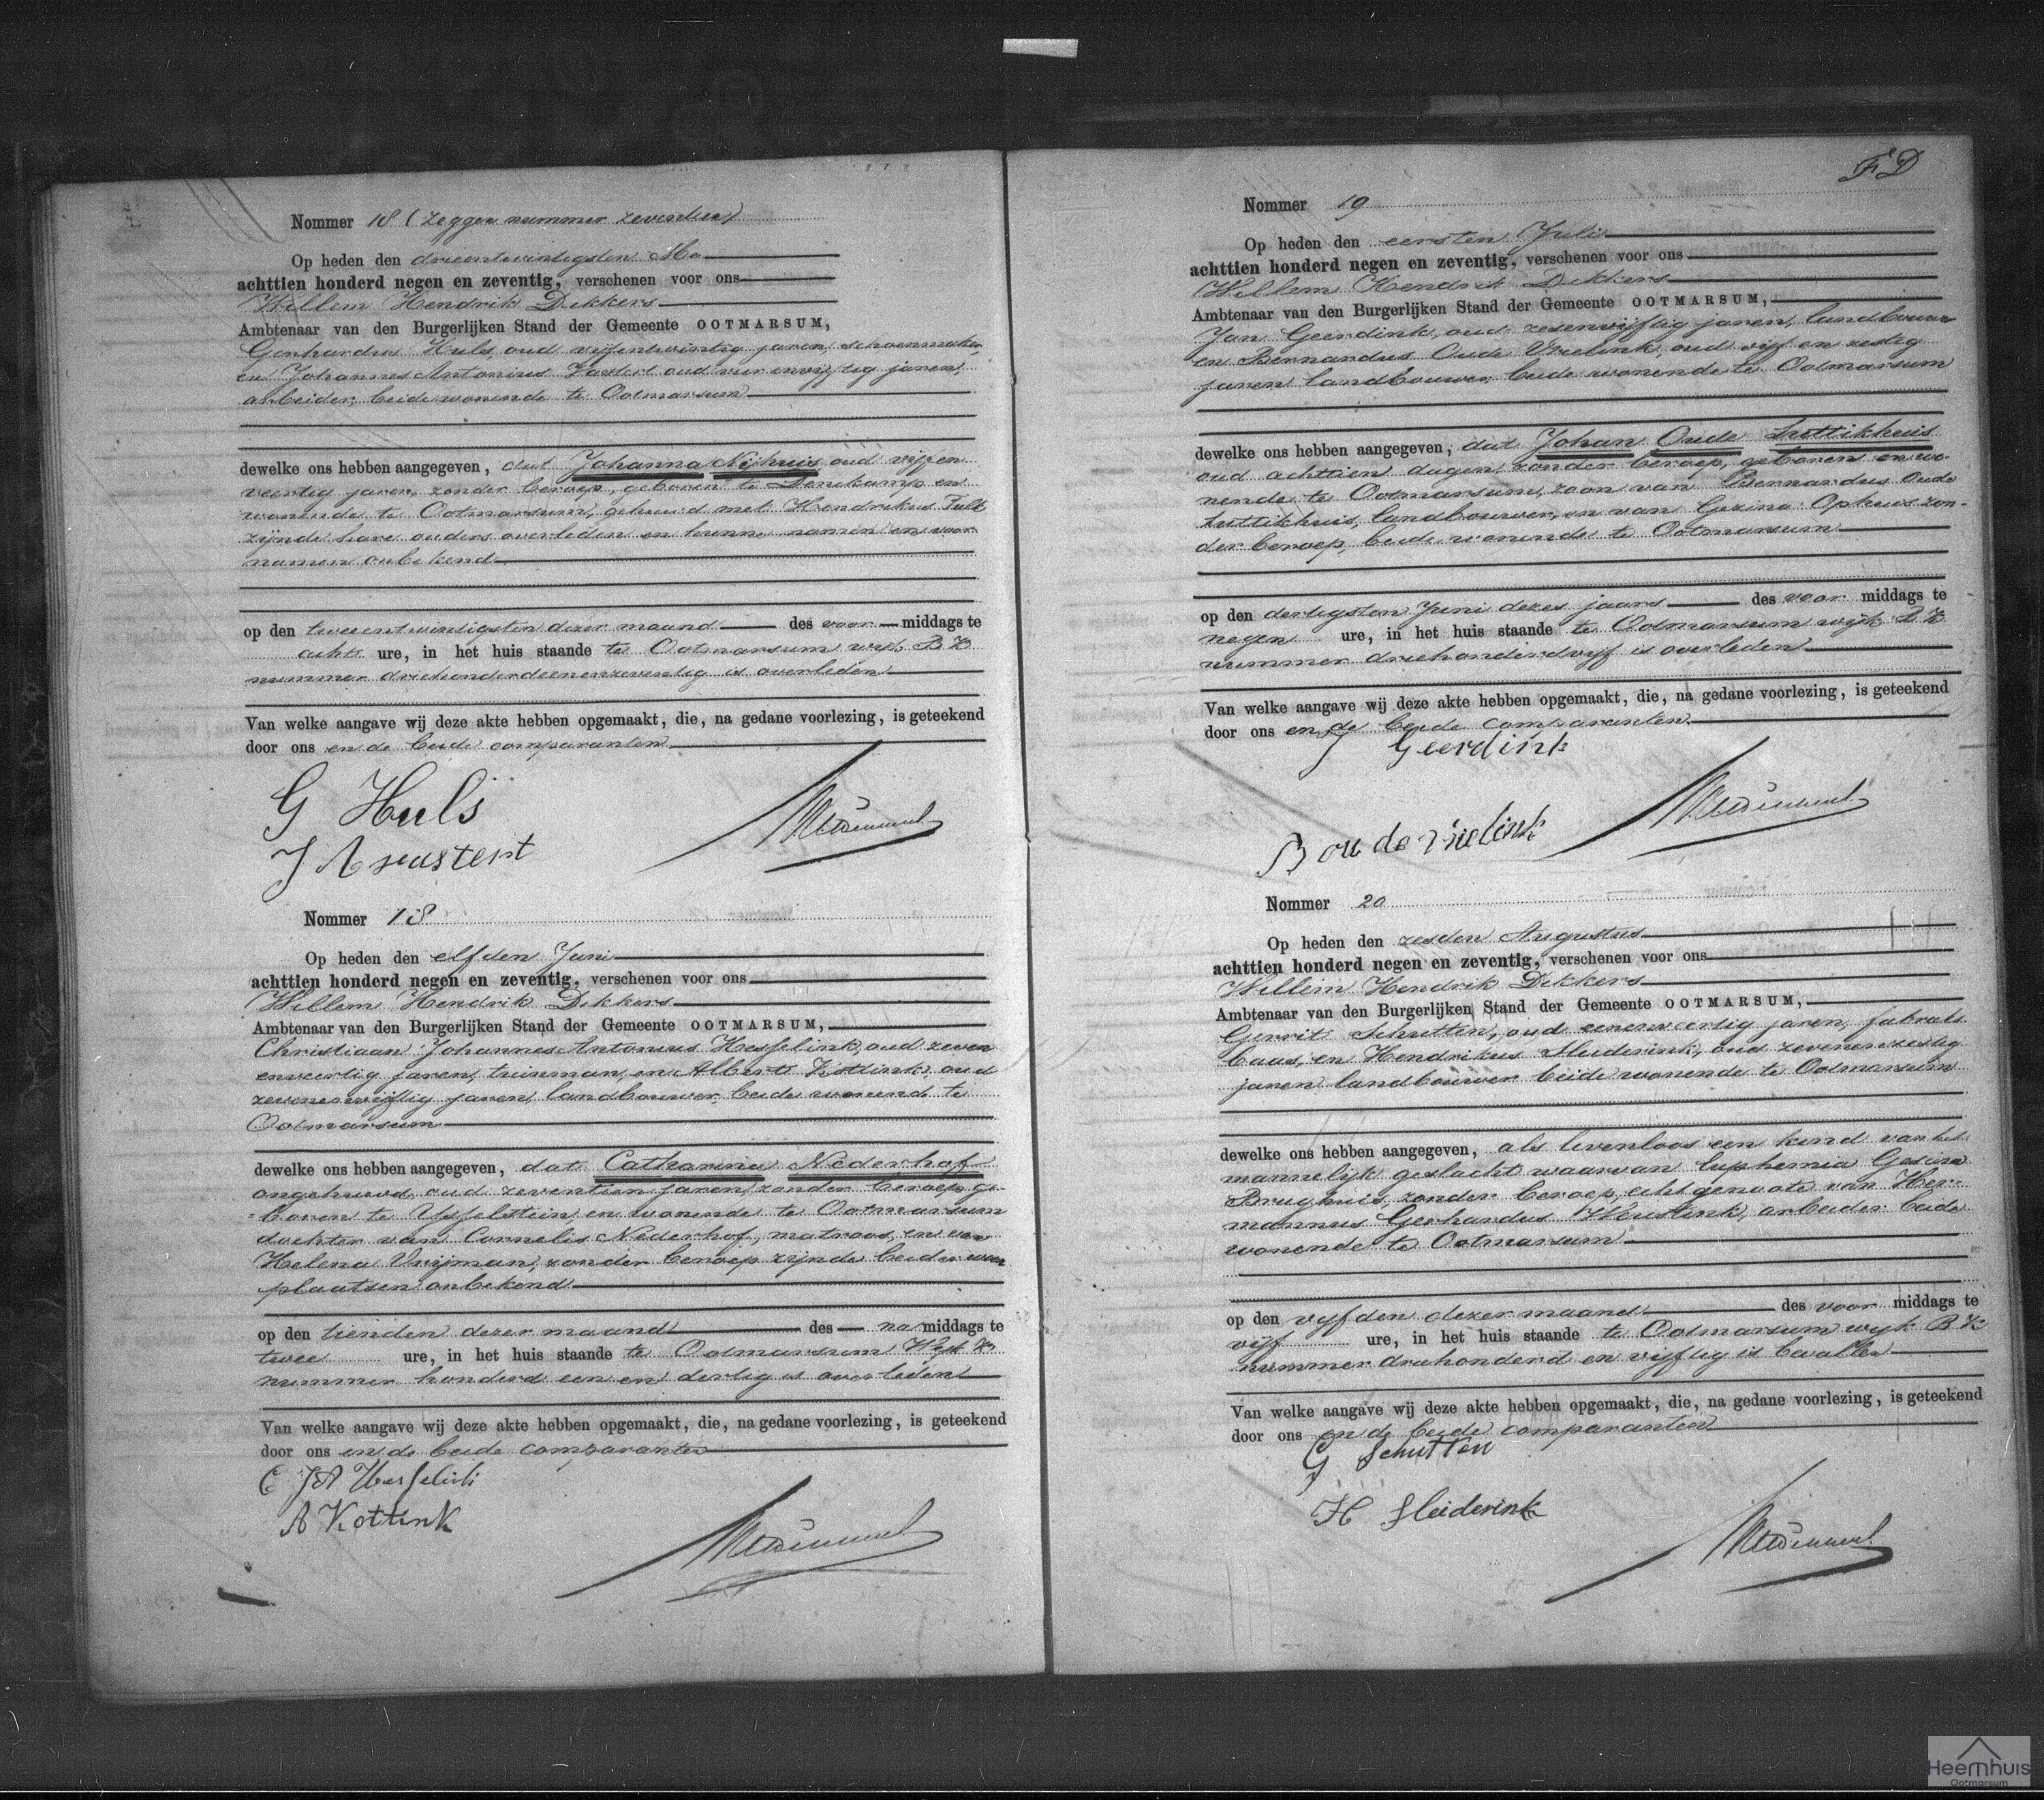 Nommer 18 (zeggen nummer zeventien)
Op heden den drieentwintigsten Mei
achttien honderd negen en zeventig, verschenen voor ons
Willem Hendrik Dekkers
Ambtenaar van den Burgerlijken Stand der Gemeente OOTMARSUM,
Gerhardus Huls, oud vijfentwintig jaren, schoenmaker,
en Johannes Antonius oud vier envijftig jaren,
arbeider, beide wonende te Ootmarsum
dewelke ons hebben aangegeven, dat Johanna Nijhuis oud vijfen
veertig jaren, zonder beroep, geboren te Denekamp en
wonende te Ootmarsum, gehuwd met Hendrikus
zijnde hare ouders overleden en hunne namen en voor
namen onbekend
op den tweeentwintigsten dezer maand des voor middags te
acht ure, in het huis staande te Ootmarsum wijk B K
nummer driehonderdeenenzeventig is overleden
Van welke aangave wij deze akte hebben opgemaakt, die, na gedane voorlezing, is geteekend
door ons en de beide comparanten
G Huls
J A
Nommer 18
Op heden den elfden Juni
achttien honderd negen en zeventig, verschenen voor ons
Willem Hendrik Dekkers
Ambtenaar van den Burgerlijken Stand der Gemeente OOTMARSUM,
Christiaan Johannes Antonius Hesselink, oud zeven
enveertig jaren, tuinman, en Albert Kottink oud
zevenenvijftig jaren, landbouwer, beide wonend te
Ootmarsum
dewelke ons hebben aangegeven, dat Catharina Nederhof
ongehuwd, oud zeventien jaren, zonder beroep, ge-
boren te IJsselstein, en wonende te Ootmarsum
dochter van Cornelis Nederhof, matroos, en van
Helena Vrijman, zonder beroep zijnde beider woon
plaatsen onbekend
op den tienden dezer maand des na middags te
twee ure, in het huis staande te Ootmarsum Wijk B
nummer honderd een en dertig is overleden
Van welke aangave wij deze akte hebben opgemaakt, die, na gedane voorlezing, is geteekend
door ons en de beide comparanten
C J A Hesselink
A Kottink
F D
Nommer 19
Op heden den eersten Juli
achttien honderd negen en zeventig, verschenen voor ons
Willem Hendrik Dekkers
Ambtenaar van den Burgerlijken Stand der Gemeente OOTMARSUM,
Jan Geerdink, oud zesenvijftig jaren, landbouwer
en Bernardus Oude Vrielink, oud vijf en zestig
jaren landbouwer, beide wonende te Ootmarsum
dewelke ons hebben aangegeven, dat Johan Oude Luttikhuis
oud achttien dagen, zonder beroep, geboren en wo-
nende te Ootmarsum, zoon van Bernardus Oude
Luttikhuis, landbouwer, en van Gezina Ophuis zon-
der beroep, beide wonende te Ootmarsum
op den dertigsten Juni dezes jaars des voor middags te
negen ure, in het huis staande te Ootmarsum wijk B K
nummer driehonderdvijf is overleden
Van welke aangave wij deze akte hebben opgemaakt, die, na gedane voorlezing, is geteekend
door ons en de beide comparanten
J Geerdink
B oude vrielink
Nommer 20
Op heden den zesden Augustus
achttien honderd negen en zeventig, verschenen voor ons
Willem Hendrik Dekkers
Ambtenaar van den Burgerlijken Stand der Gemeente OOTMARSUM,
Gerrit Schutten, oud eenenveertig jaren, fabrieks
baas, en Hendrikus Sleiderink, oud zevenenzestig
jaren landbouwer beide wonende te Ootmarsum
dewelke ons hebben aangegeven, als levenloos een kind van het
mannelijk geslacht waarvan Euphemia Gesina
Brughuis, zonder beroep, echtgenoote van Her-
mannus Gerhardus Weustink, arbeider beide
wonende te Ootmarsum
op den vijfden dezer maand des voor middags te
vijf ure, in het huis staande te Ootmarsum wijk B K
nummer driehonderd en vijftig is bevallen
Van welke aangave wij deze akte hebben opgemaakt, die, na gedane voorlezing, is geteekend
door ons en de beide comparanten
G Schutten
H Sleiderink
Heemhuis
Ootmarsum